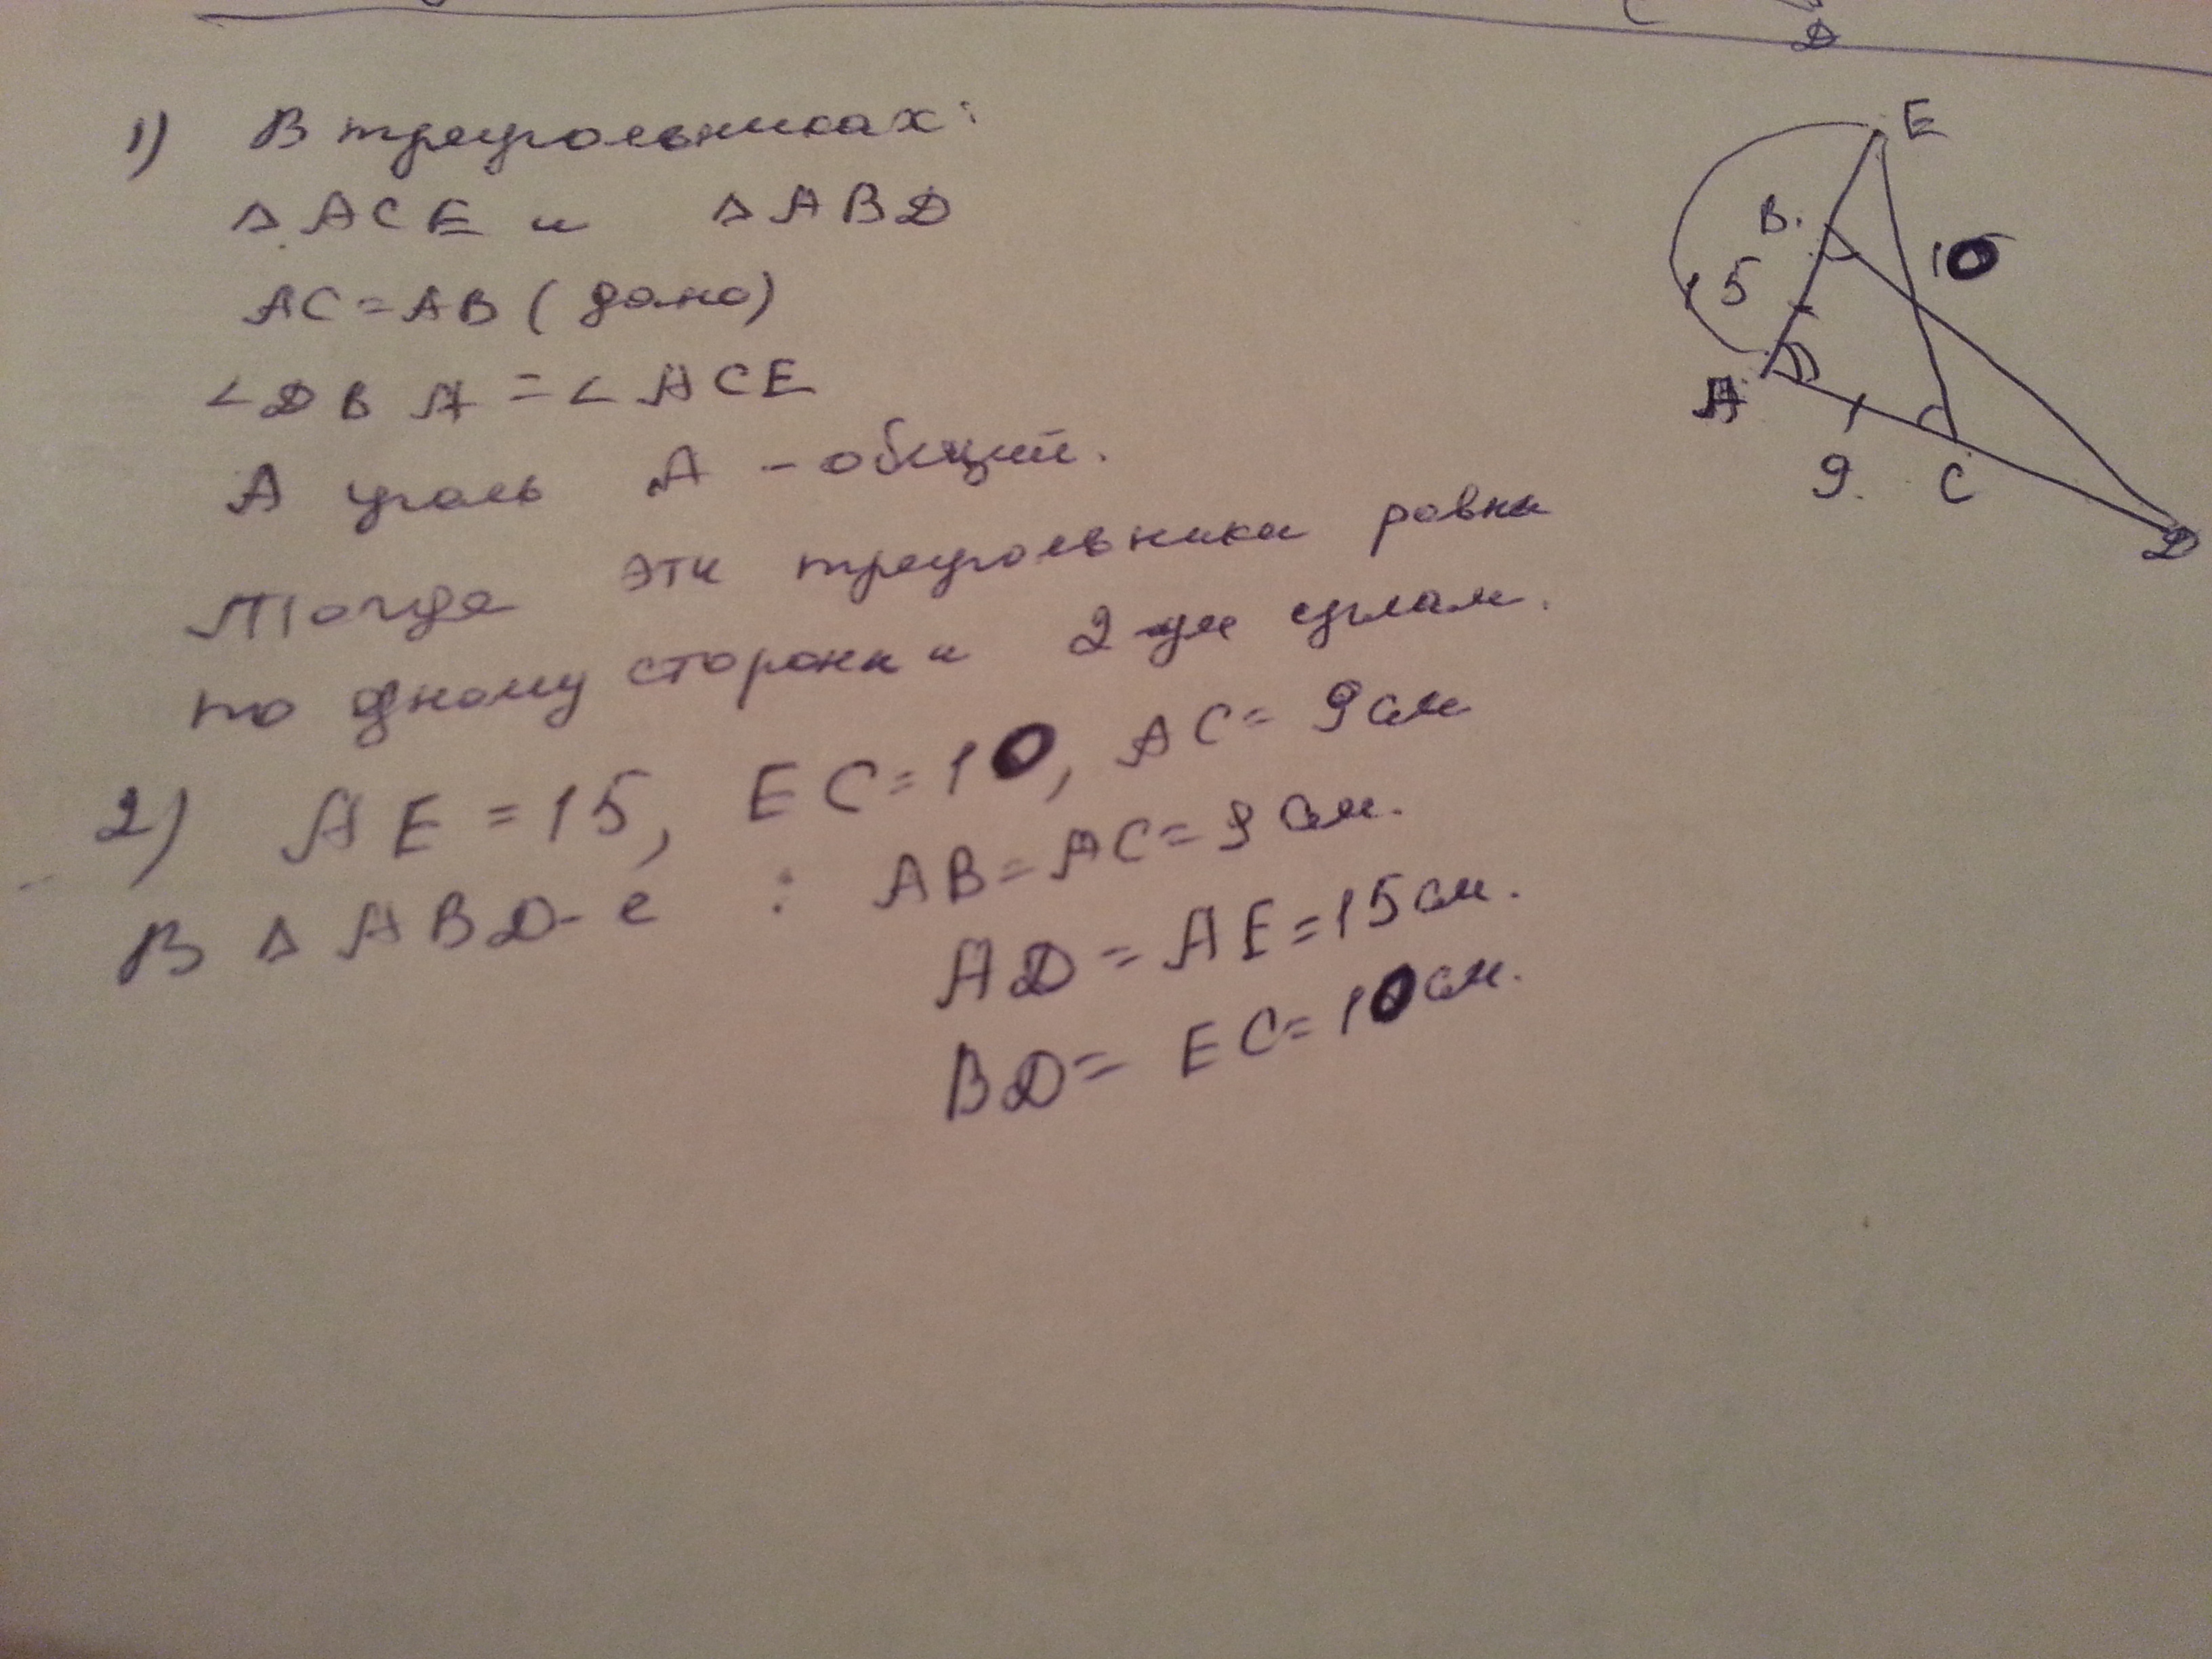 C
D
1) В треугольниках:
△ ACE и △ ABD
AC = AB (дано)
∠DBA = ∠ACE
А уголь A - общий.
Тогда эти треугольники равны
по одному стороны и 2-ум углам.
2) AE = 15, EC = 10, AC = 9 см
В △ ABD-е : AB = AC = 9 см.
AD = AE = 15 см.
BD = EC = 10 см.
E
B.
15
10
A
9.
C
D